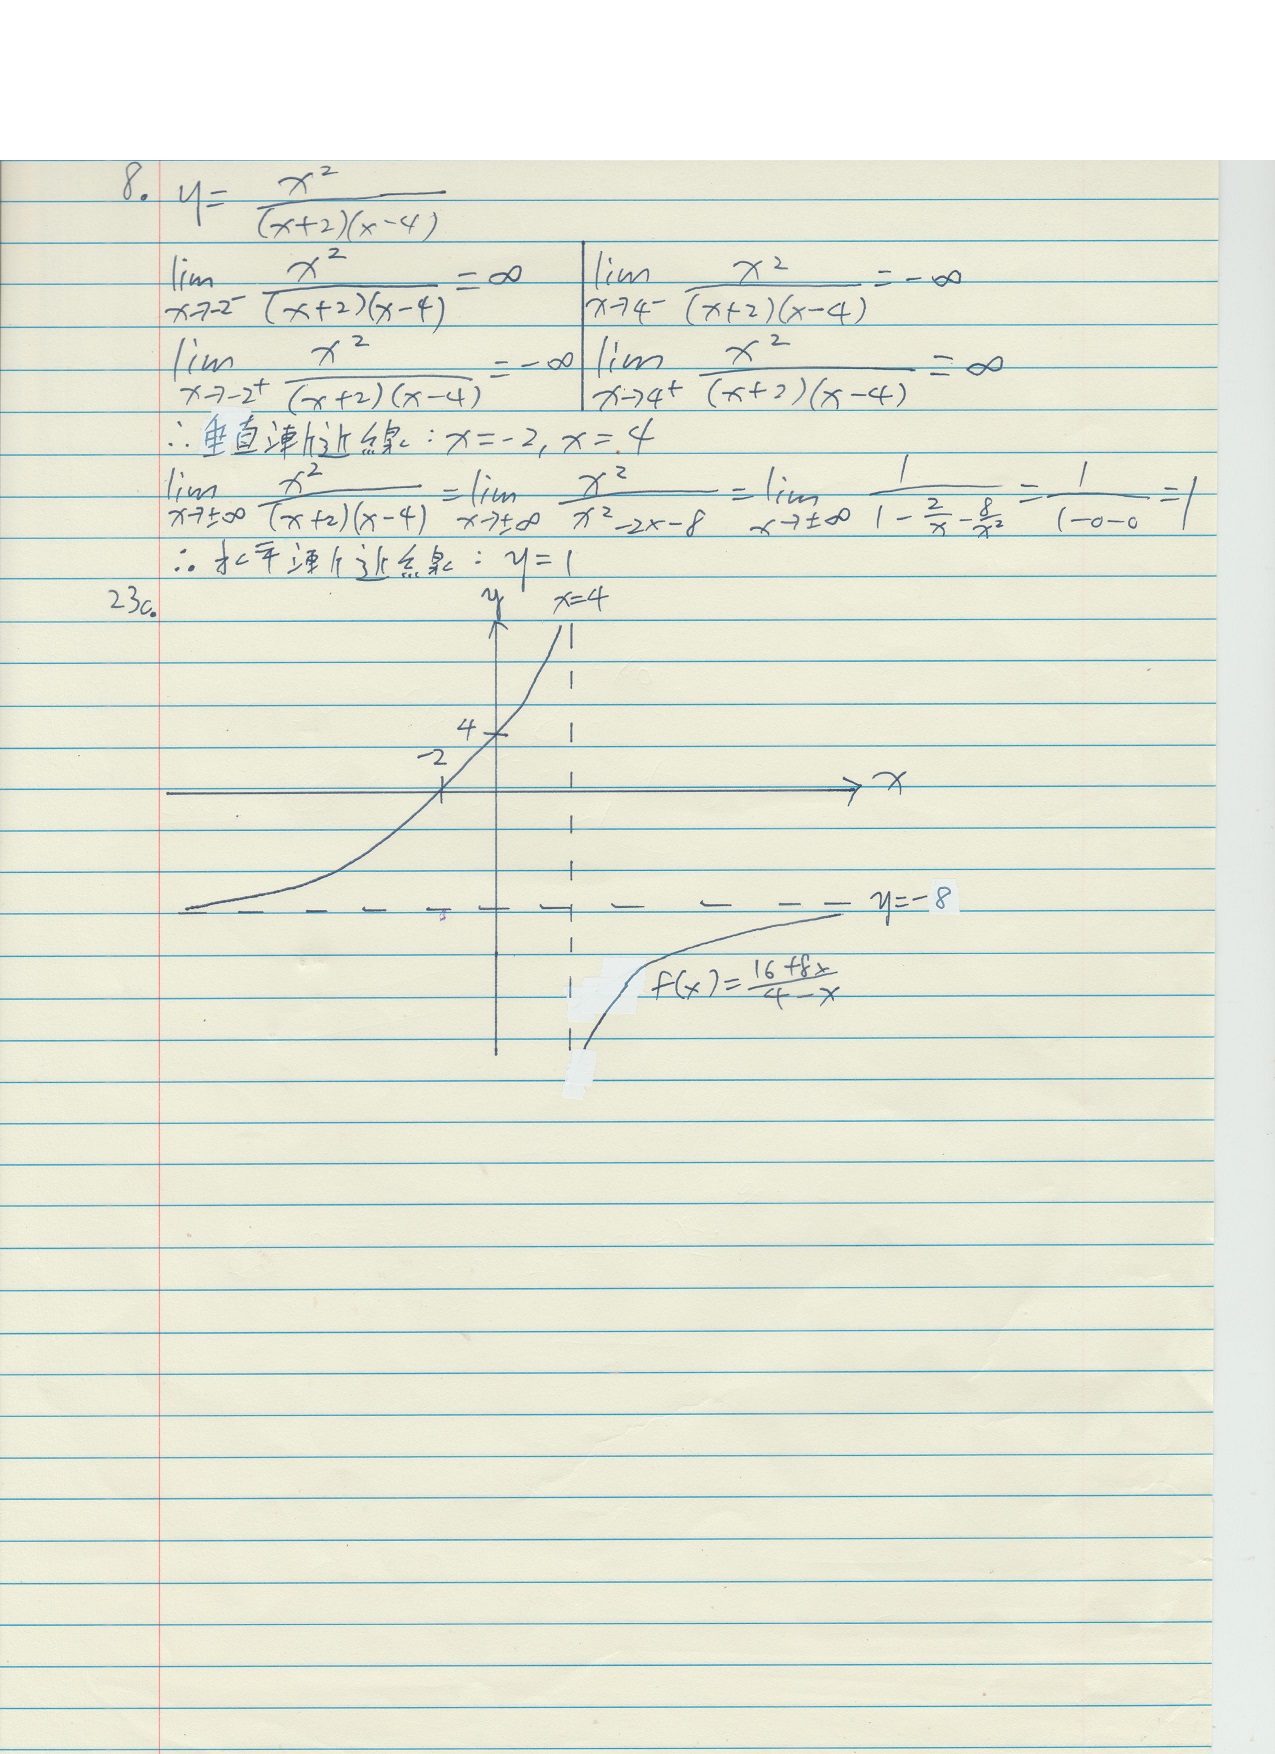 8. y = x²/((x+2)(x-4))
lim x→-2⁻ x²/((x+2)(x-4)) = ∞
lim x→-2⁺ x²/((x+2)(x-4)) = -∞
lim x→4⁻ x²/((x+2)(x-4)) = -∞
lim x→4⁺ x²/((x+2)(x-4)) = ∞
∴ 垂直漸近線: x=-2, x=4
lim x→±∞ x²/((x+2)(x-4)) = lim x→±∞ x²/(x²-2x-8) = lim x→±∞ 1/(1-2/x-8/x²) = 1/(1-0-0) = 1
∴ 水平漸近線: y=1
23c.
y
x=4
4
-2
x
y=-8
f(x)=(16+8x)/(4-x)